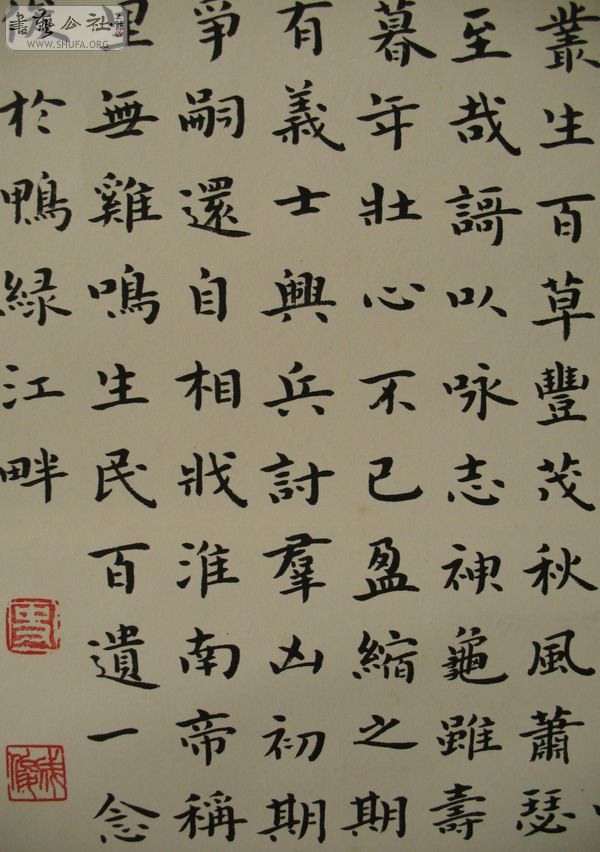 叢生百草豐茂秋風蕭瑟
至哉謌以咏志神龜雖壽
暮年壯心不已盈縮之期
有義士興兵討羣凶初期
爭嗣還自相戕淮南帝稱
里無雞鳴生民百遺一念
於鴨緑江畔
書藝公社
WWW.SHUFA.ORG